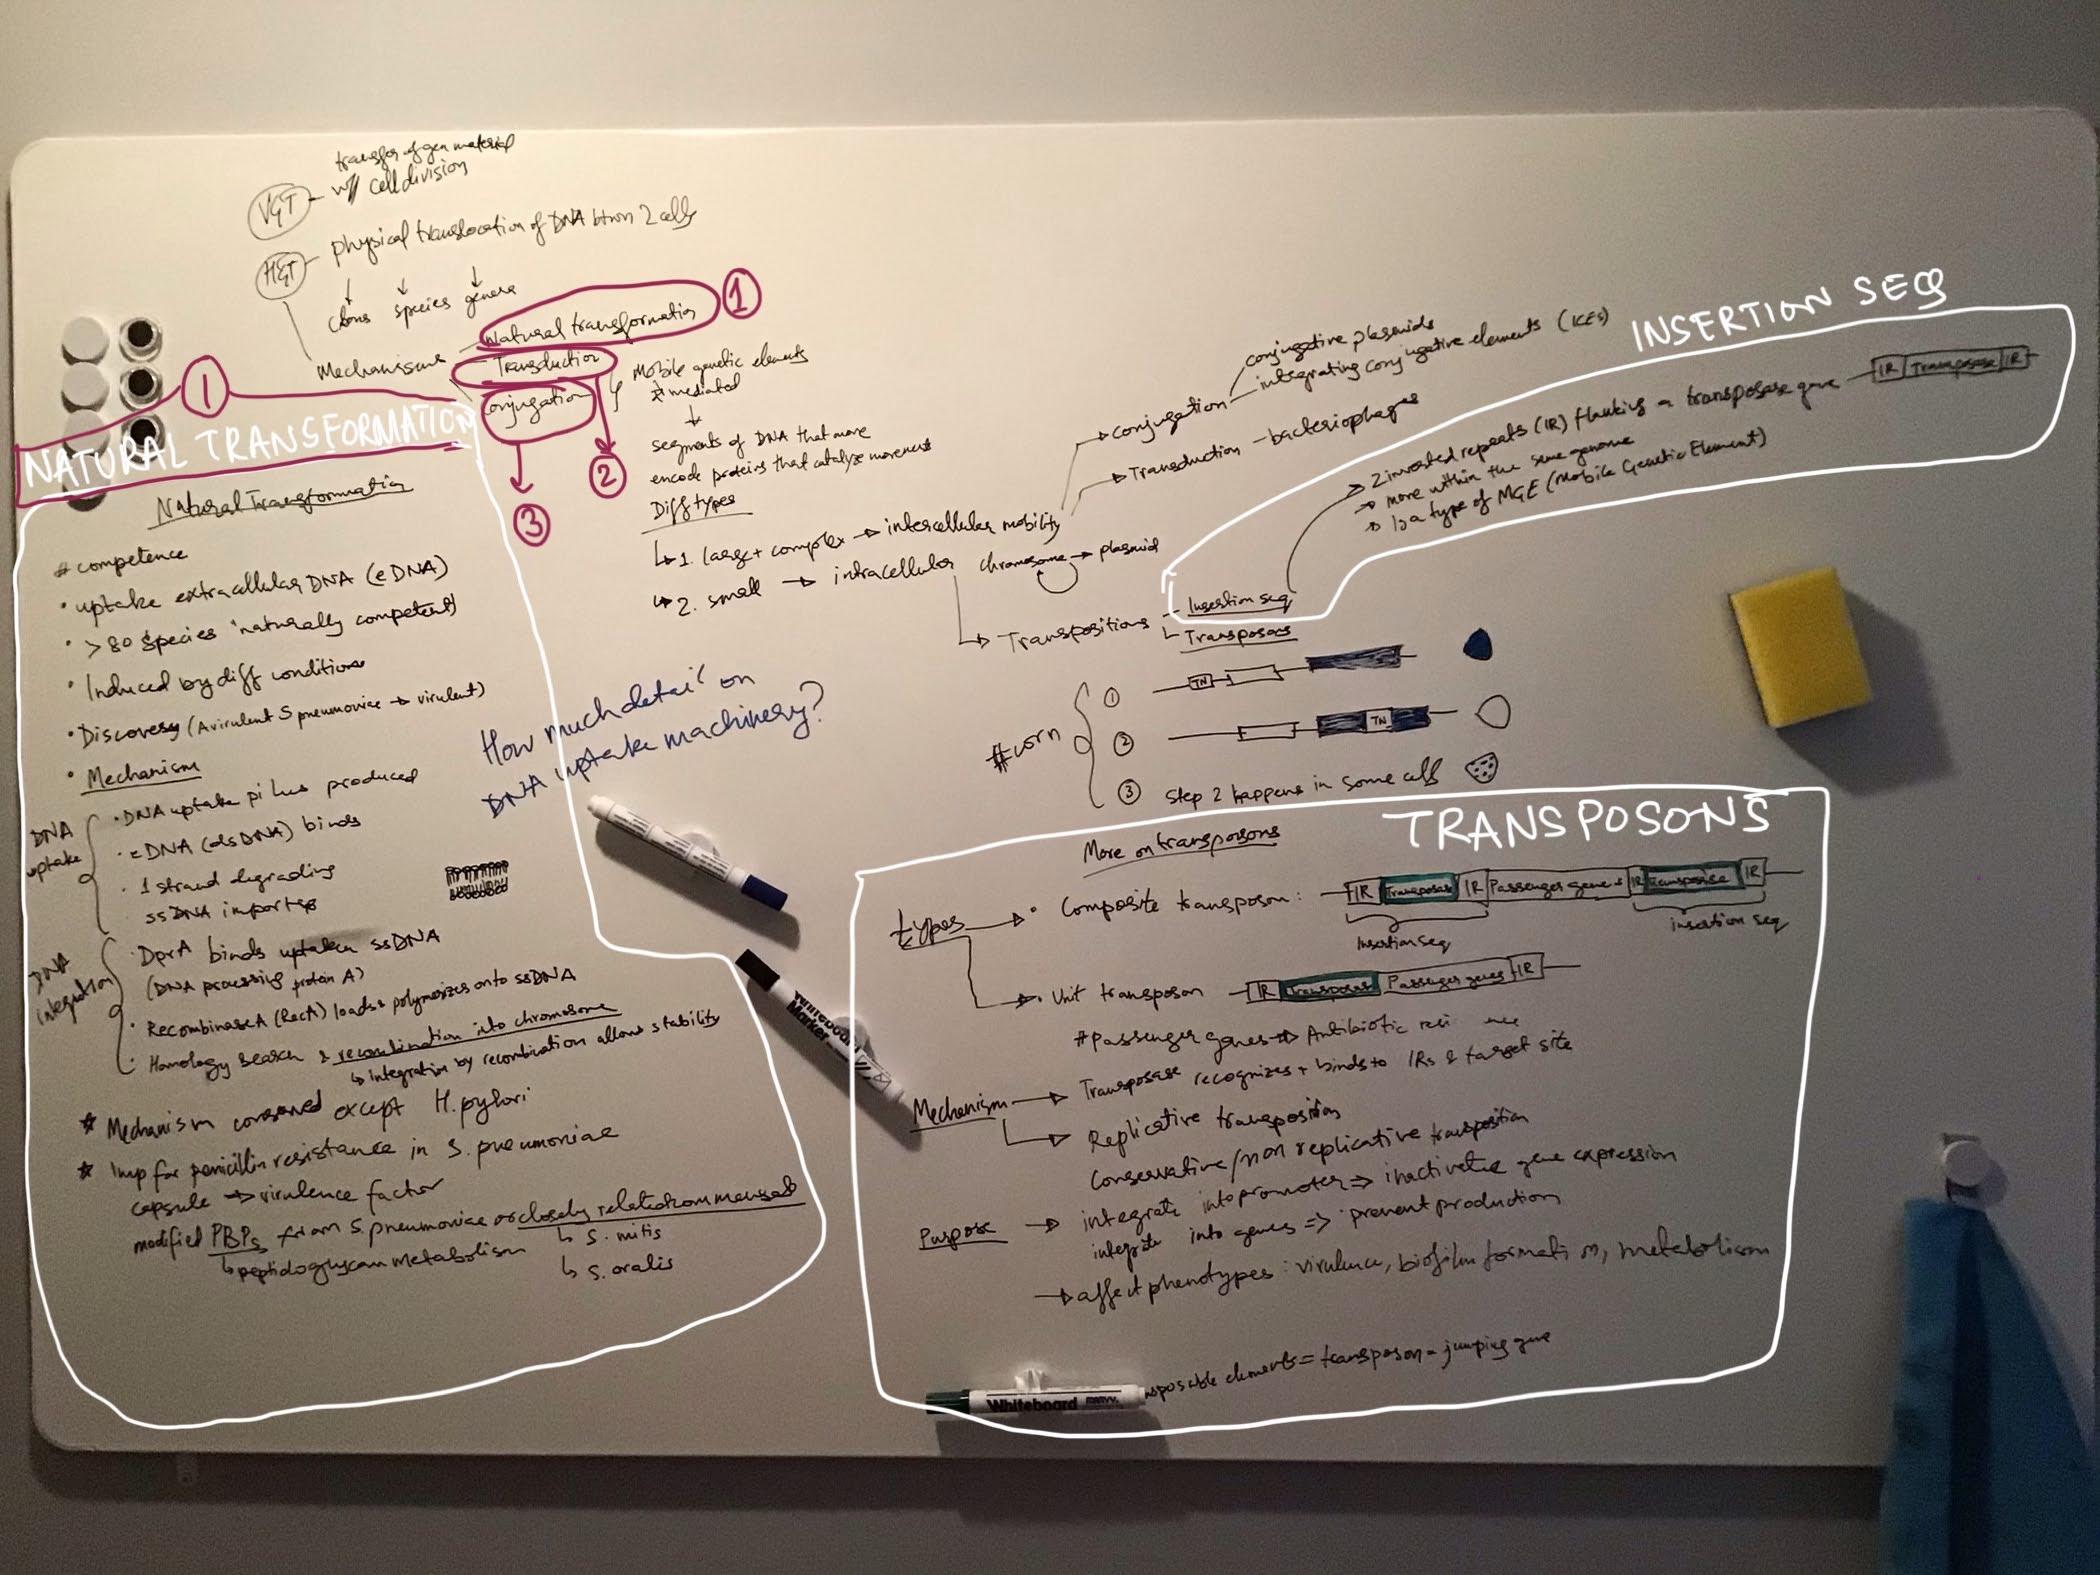 transfer of gen material
VGT - w/ cell division
HGT - physical translocation of DNA btwn 2 cells
clons species genera
Mechanisms
Natural transformation
1
Transduction
Conjugation
1
2
3
Mobile genetic elements
mediated
segments of DNA that move
encode proteins that catalyze movement
Diff types
1. large + complex → intercellular mobility
2. small → intracellular chromosome → plasmid
→ conjugation
conjugative plasmids
integrating conjugative elements (ICEs)
→ Transduction - bacteriophages
→ Transpositions
Insertion seq
Transposons
INSERTION SEQ
→ 2 inverted repeats (IR) flanking a transposase gene
IR Transposase IR
→ move within the same genome
→ Is a type of MGE (Mobile Genetic Element)
#corn
1 TN
2 TN
3 Step 2 happens in some cells
NATURAL TRANSFORMATION
Natural Transformation
# competence
• uptake extracellular DNA (eDNA)
• > 80 species 'naturally competent'
• Induced by diff conditions
• Discovery (Avirulent S pneumoniae → virulent)
• Mechanism
DNA uptake
• DNA uptake pilus produced
• eDNA (dsDNA) binds
• 1 strand degrading
ssDNA imports
DNA integration
• DprA binds uptaken ssDNA
(DNA processing protein A)
• Recombinase A (RecA) loads & polymerizes onto ssDNA
• Homology search & recombination into chromosome
↳ integration by recombination allows stability
* Mechanism conserved except H. pylori
* Imp for penicillin resistance in S. pneumoniae
capsule → virulence factor
modified PBPs from S. pneumoniae or closely related commensals
↳ peptidoglycan metabolism
↳ S. mitis
↳ S. oralis
How much detail on
DNA uptake machinery?
Whiteboard
Marker
TRANSPOSONS
More on transposons
types → • Composite transposon : IR Transposase IR Passenger genes IR Transposase IR
Insertion seq
insertion seq
→ • Unit transposon IR Transposase Passenger genes IR
# Passenger genes → Antibiotic
Mechanism → Transposase recognizes + binds to IRs & target site
→ Replicative transposition
Conservative/non replicative transposition
Purpose → integrate into promoter ⇒ inactivate gene expression
integrate into genes => prevent production
→ affect phenotypes : virulence, biofilm formation, metabolism
elements = transposon = jumping gene
Whiteboard